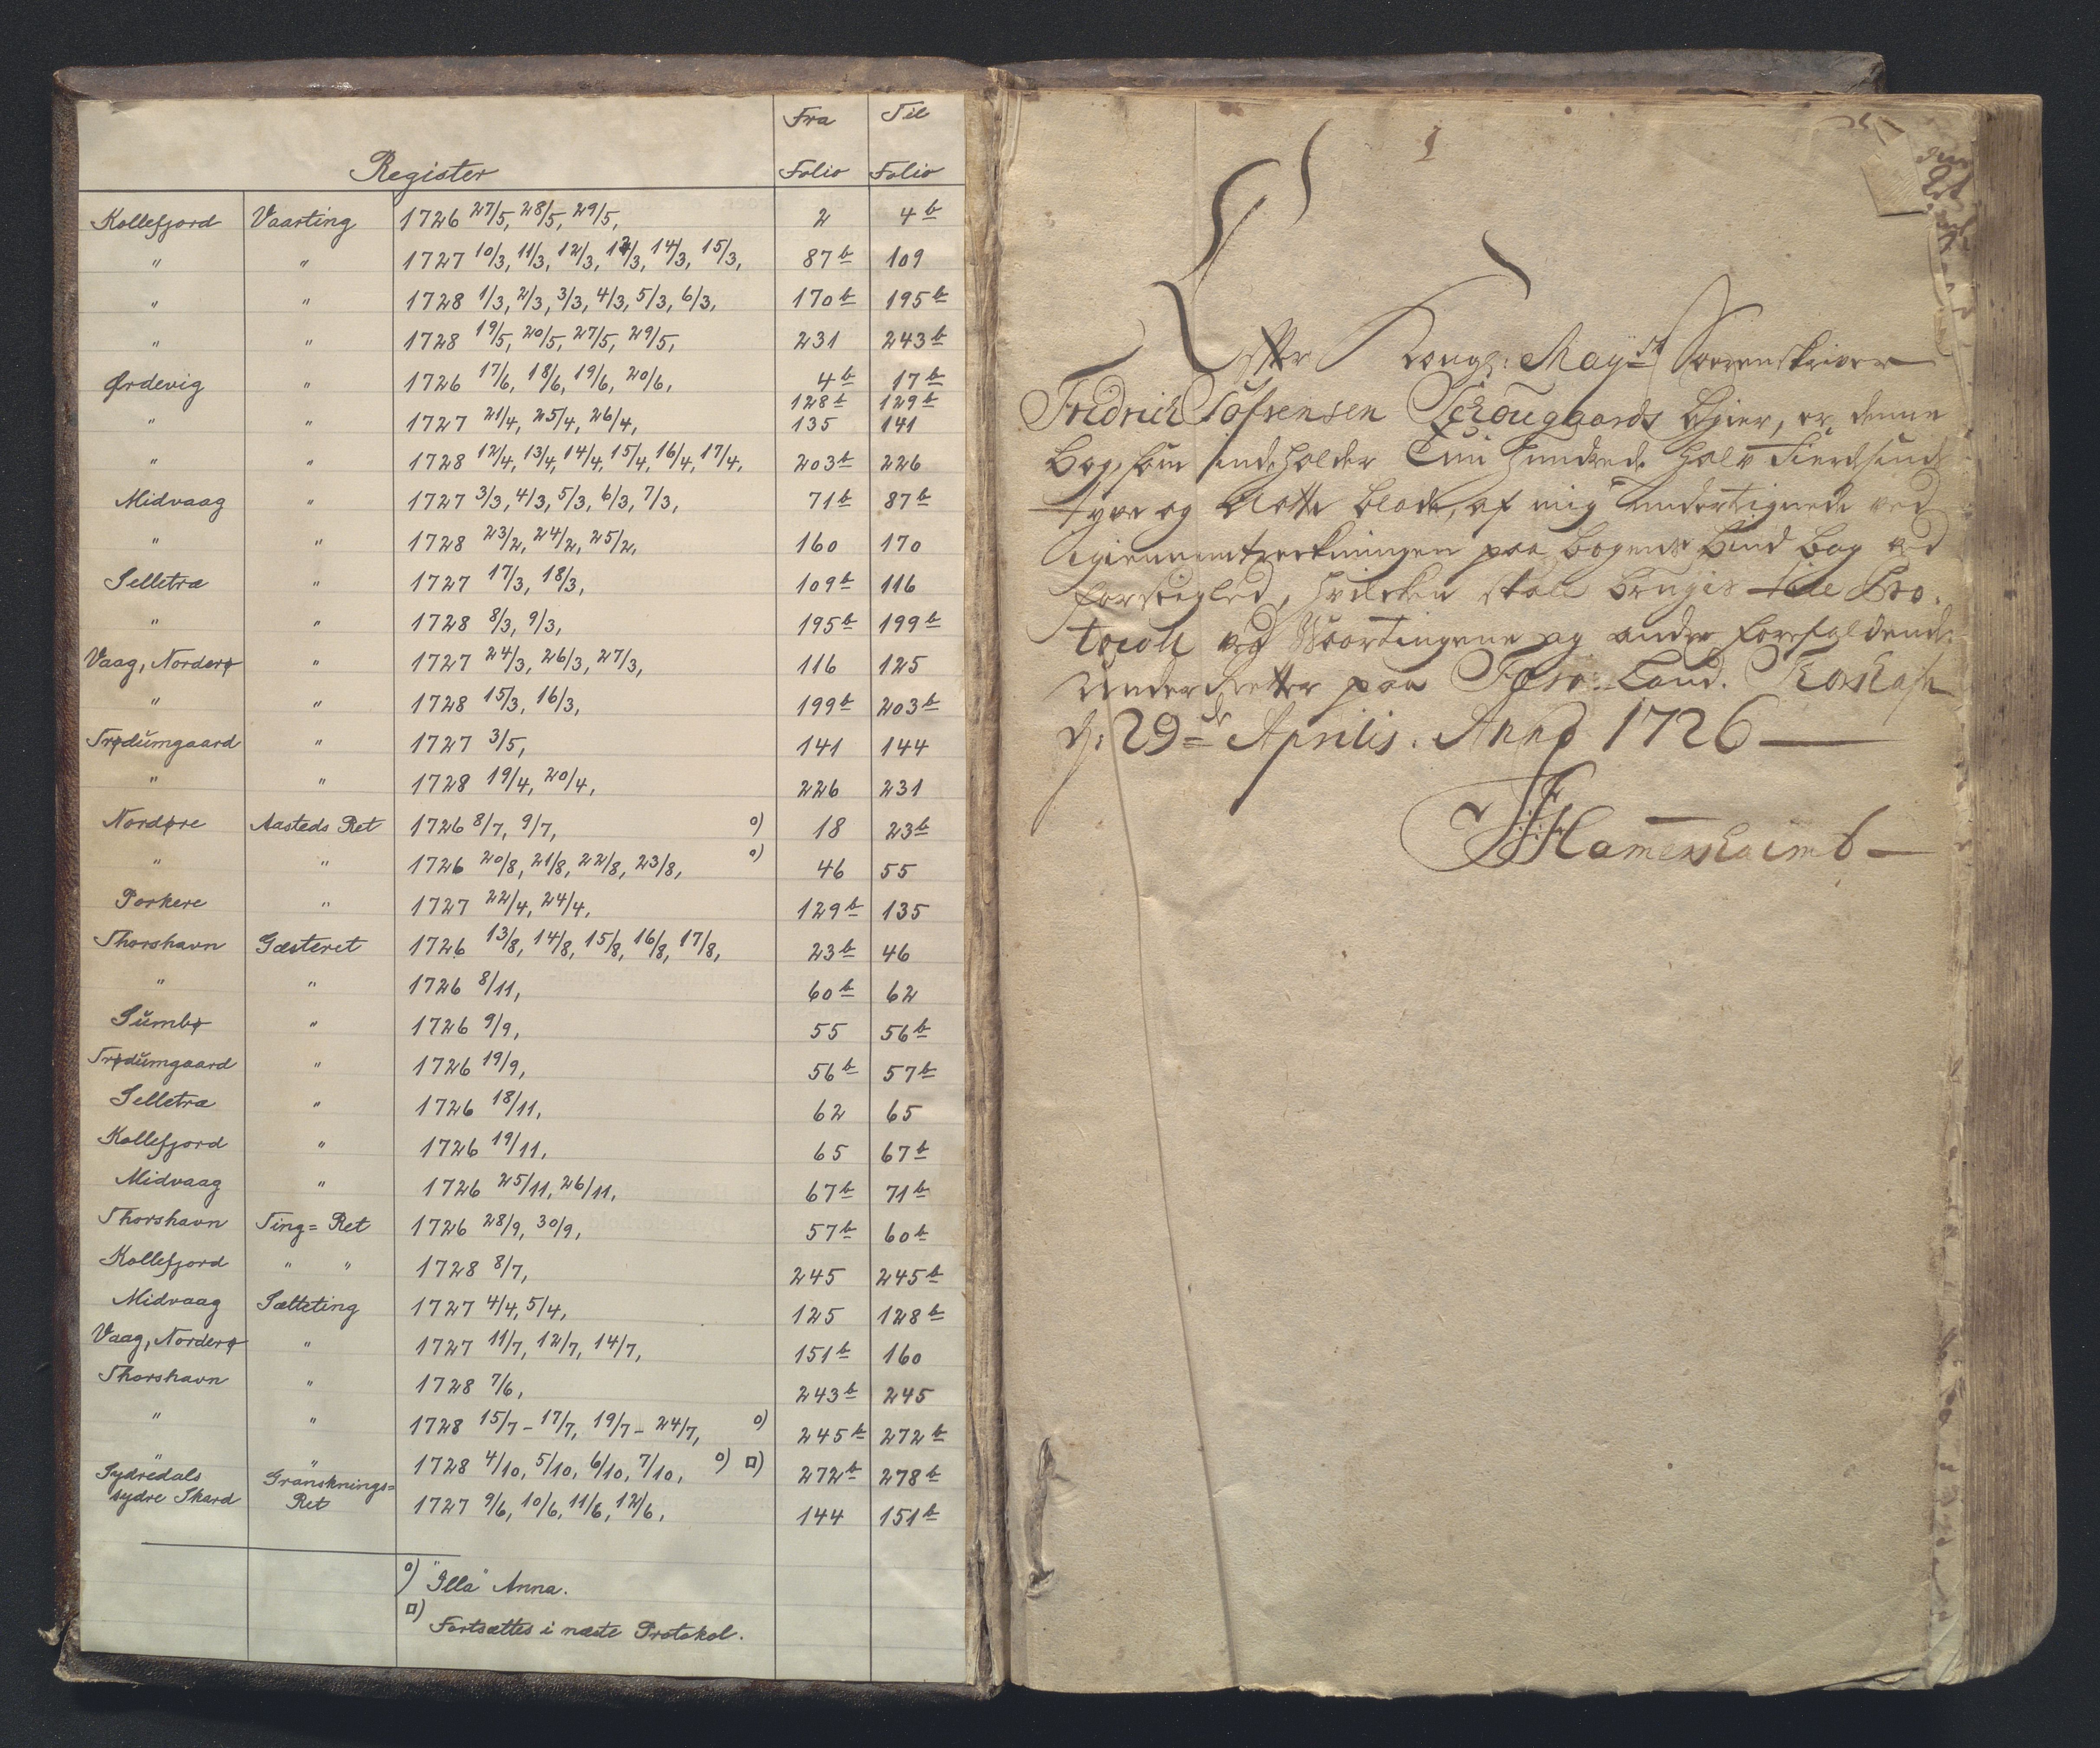 Fra Til
Register Folio Folio
Kollefjord Vaarting 1726 27/5, 28/5, 29/5, 2 4b
" " 1727 10/3, 11/3, 12/3, 13/3, 14/3, 15/3, 87b 109
" " 1728 1/3, 2/3, 3/3, 4/3, 5/3, 6/3, 170b 195b
" " 1728 19/5, 20/5, 27/5, 29/5, 231 243b
Ørdevig " 1726 17/6, 18/6, 19/6, 20/6, 4b 17b
128b 129b
" " 1727 21/4, 25/4, 26/4, 135 141
" " 1728 12/4, 13/4, 14/4, 15/4, 16/4, 17/4, 203b 226
Midvaag " 1727 3/3, 4/3, 5/3, 6/3, 7/3, 71b 87b
" " 1728 23/2, 24/2, 25/2, 160 170
Selletræ " 1727 17/3, 18/3, 109b 116
" " 1728 8/3, 9/3, 195b 199b
Vaag, Norderø " 1727 24/3, 26/3, 27/3, 116 125
" " 1728 15/3, 16/3, 199b 203b
Trødumgaard " 1727 3/5, 141 144
" " 1728 19/4, 20/4, 226 231
Nordøre Aasteds Ret 1726 8/7, 9/7, o) 18 23b
" " 1726 20/8, 21/8, 22/8, 23/8, o) 46 55
Porkere " 1727 22/4, 24/4, 129b 135
Thorshavn Gæsteret 1726 13/8, 14/8, 15/8, 16/8, 17/8, 23b 46
" " 1726 8/11, 60b 62
Sumbø " 1726 9/9, 55 56b
Trødumgaard " 1726 19/9, 56b 57b
Selletræ " 1726 18/11, 62 65
Kollefjord " 1726 19/11, 65 67b
Midvaag " 1726 25/11, 26/11, 67b 71b
Thorshavn Ting= Ret 1726 28/9, 30/9, 57b 60b
Kollefjord " " 1728 8/7, 245 245b
Midvaag Sætteting 1727 4/4, 5/4, 125 128b
Vaag, Norderø " 1727 11/7, 12/7, 14/7, 151b 160
Thorshavn " 1728 7/6, 243b 245
" " 1728 15/7 - 17/7, 19/7 - 24/7, o) 245b 272b
" " 1728 4/10, 5/10, 6/10, 7/10, o) □) 272b 278b
Sydredals Gransknings=
sydre Skard Ret 1727 9/6, 10/6, 11/6, 12/6, 144 151b
o) "Illa" Anna.
□) Fortsættes i næste Protokol.
1
Efter Kongl: May:st Soerenskriver
Fridrich Tofrensen Schougaards begier, er denne
bog, som indeholder Tuu hundrede halv Fierdsinds
tyve og Aatte blade, af mig undertignede ved
igiennemtreckningen paa bogens bind bag ved
forseigled, hvilcken skall bruges till Pro-
tocoll ved Waartingene og andre forefaldende
Under Retter paa Færø: Land.
d: 29de Aprilis. Anno 1726
Hamershaimb